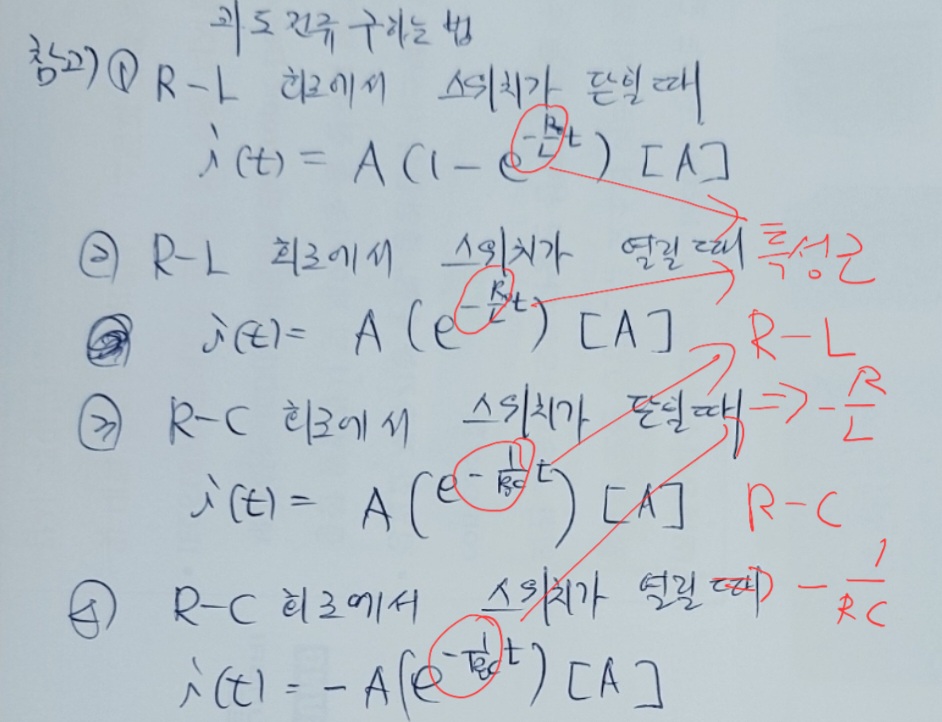 과도전류 구하는 법
참고) ① R-L 회로에서 스위치가 닫힐 때
i(t) = A(1 - e^{-\frac{R}{L}t}) [A]
② R-L 회로에서 스위치가 열릴 때
i(t) = A(e^{-\frac{R}{L}t}) [A]
③ R-C 회로에서 스위치가 닫힐 때
i(t) = A(e^{-\frac{1}{RC}t}) [A]
④ R-C 회로에서 스위치가 열릴 때
i(t) = -A(e^{-\frac{1}{RC}t}) [A]
특성근
R-L
⇒ -\frac{R}{L}
R-C
⇒ -\frac{1}{RC}